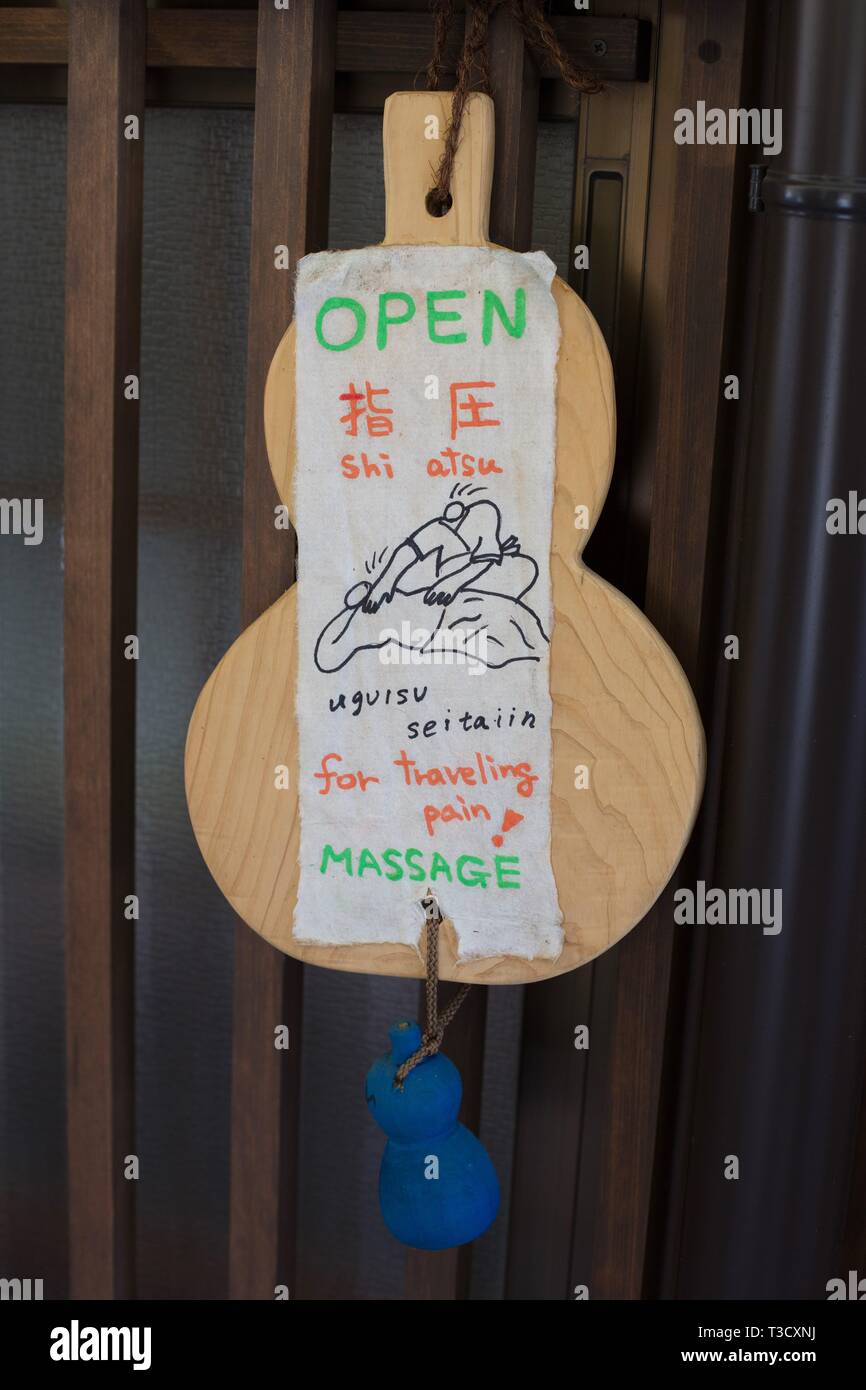 OPEN
指圧
shi atsu
uguisu
seitaiin
for traveling
pain!
MASSAGE
alamy
Image ID: T3CXNJ
www.alamy.com